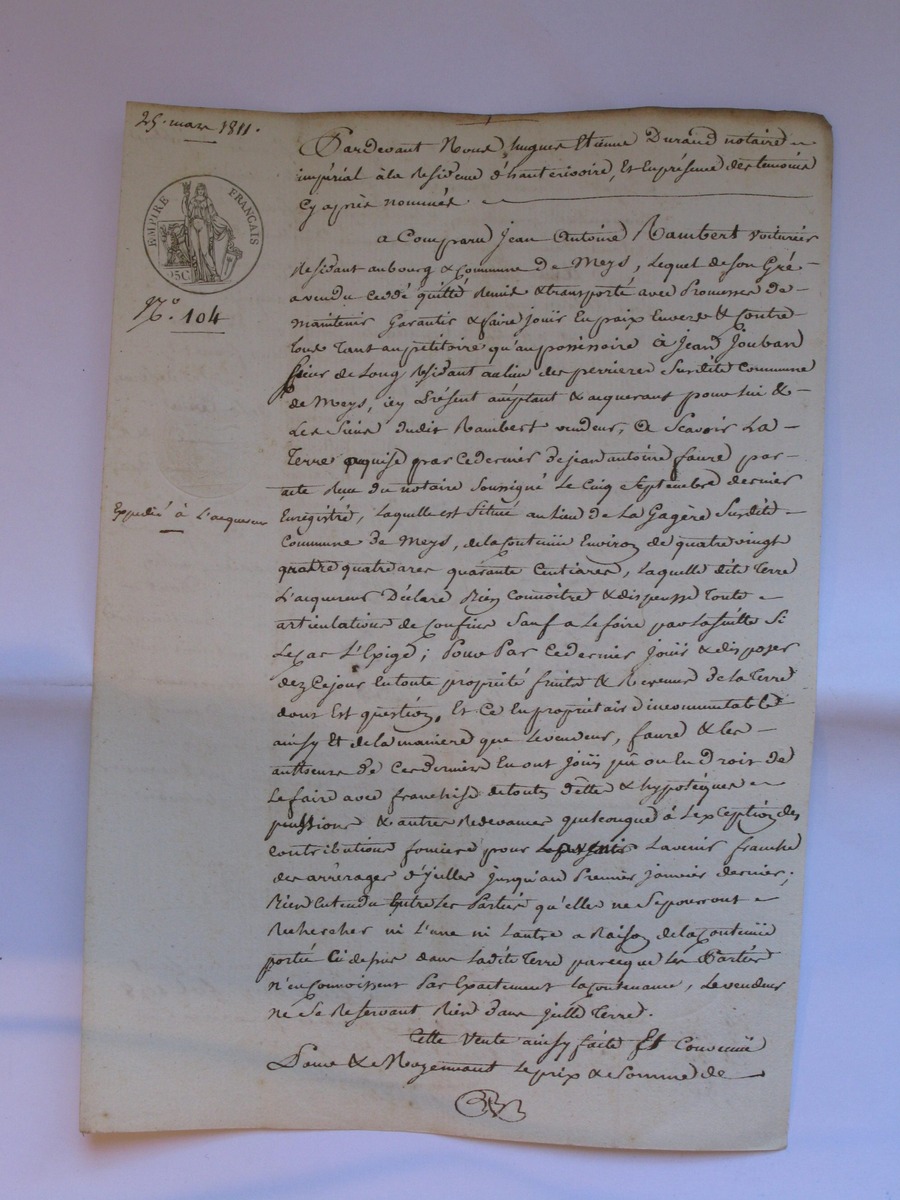 25. mars 1811.
EMPIRE FRANÇAIS
25C
N.º 104
Expedié à L'acquereur
Pardevant Nous hugues Etienne Durand notaire
impérial à la Residence d'hauterivoire, Et En présence des temoins
Cy après nommés.
a Comparu Jean Antoine Rambert voiturier
Residant au bourg & Commune de Meys, Lequel de son Gré
a vendu Ceddé quitté Remis & transporté avec Promesses de
maintenir Garantir & faire Jouir En paix Envers & Contre
tous tant au pétitoire qu'au possessoire à Jean Jouban
fieur de Long Residant au lieu des perrieres Surdite Commune
de Meys, icy Présent acceptant & acquerant pour lui &
Les Siens dudit Rambert vendeur, a Scavoir La
Terre acquise par Ce dernier de jean antoine faure par
acte Reçu du notaire Soussigné Le Cinq Septembre dernier
Enregistré, Laquelle est Située au Lieu de La Gagère Surdite
Commune de Meys, de la Contenüe Environ de quatre vingt
quatre ares quarante Centiares, Laquelle dite Terre
L'acquereur Déclare Bien Connoître & dispense Toute
articulations de Confins Sauf a Le faire par La suitte Si
Le Cas L'Exige; Pour Par Ce dernier Jouir & disposer
dez Ce jour En toute propriété fruits & Revenus de la Terre
dont Est question, Et Ce En propriétaire incommutable
ainsy Et de la maniere que Le vendeur, faure & les
autheurs de Ces derniers En ont Joüi pû ou En Droit de
Le faire avec franchise de toutes dettes & hypotéques
penssions & autres Redevances quelconque à L'exception des
Contributions foncière pour Lavenir franche
des arrérages d'Jcelles jusqu'au Premier janvier dernier;
Bien Entendu Entre Les Parties qu'elles ne Se pourront
Rechercher ni L'une ni L'autre a Raison de la Contenüe
portée Ci dessus dans Ladite Terre parceque Les Parties
n'en Connoissent Pas Exactement La Contenance, Le vendeur
ne Se Reservant Rien dans Jcelle Terre.
Cette Vente ainsy faite Et Convenüe
Pour & Moyennant Le prix & Somme de